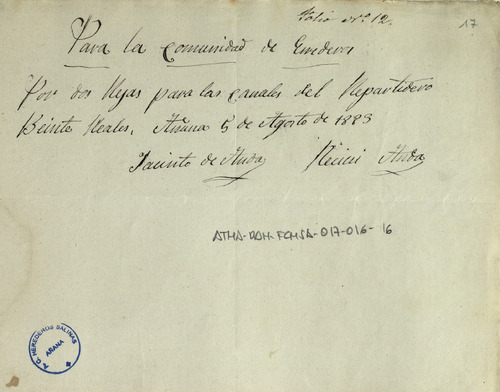 Folio nº 12.
17
Para la comunidad de
Por dos Rejas para las canales del Repartidero
Beinte Reales, Añana 5 de Agosto de 1883
Jacinto de Anda Anda
ATHA-DAH-FCMSA-017-016-16
A. G. HEREDEROS SALINAS
AÑANA